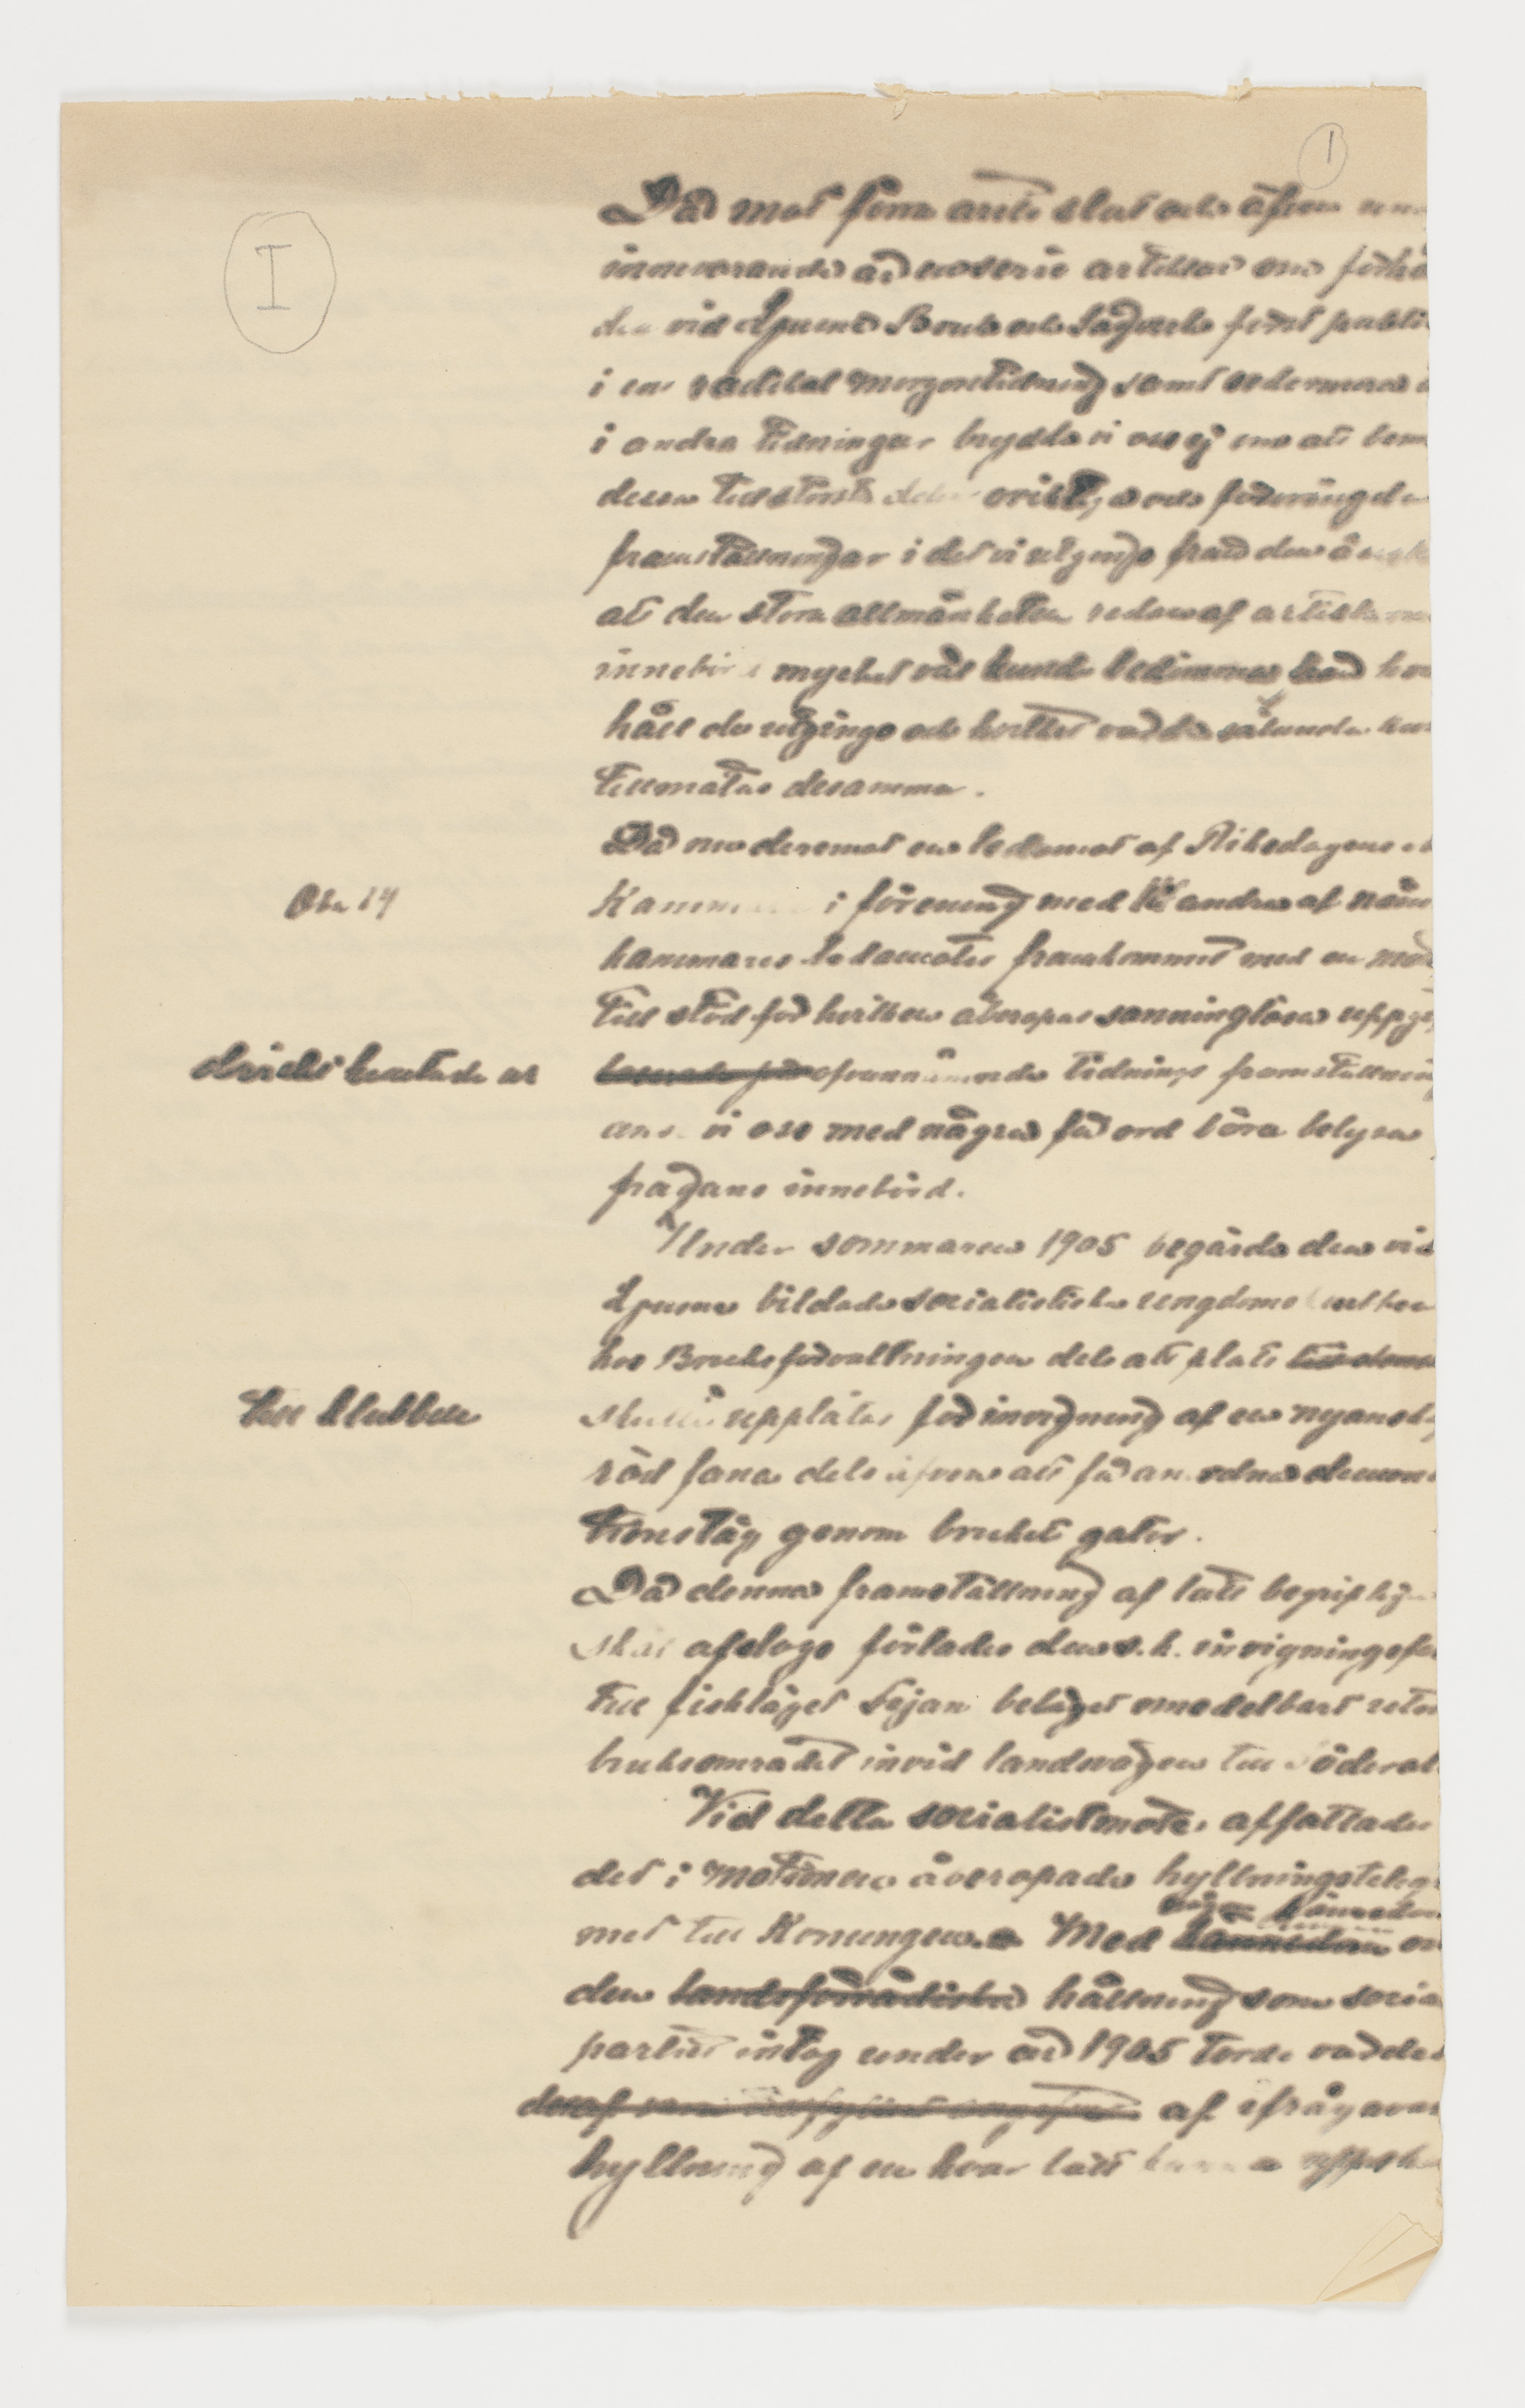 1
I
Då mot förra årets slut och äfven un
innevarande år en serie artiklar om förhå
den vid Ljusne Bruk och Sågverk först publi
i en radikal morgontidning samt sedermera i
i andra tidningar brydde vi oss ej om att bem
dessa oriktiga och
framställningar i det vi utgingo från den
att den stora allmänheten redan af artiklarnes
mycket väl kunde bedömma från hva
håll de utgingo och hvilket värde sålunda kun
tillmätas desamma.
Då nu deremot en ledamot af Riksdagens
Kamm i förening med andra af näm
kammares ledamöter framkommit med en mo
till stöd för hvilken åberopas sanningslösa uppgi
direkt hemtade ur
ofvannämnda tidnings framställning
anse vi oss med några få ord böra belysa
frågans innebörd.
Under sommaren 1905 begärde den vid
Ljusne bildade socialistiska ungdomsklubben
hos Bruksförvaltningen dels att plats
till klubben
skulle upplåtas för invigning af en nyansk
röd fana dels äfven att få anordna demons
tionståg genom brukets gator.
Då denna framställning af lätt begripliga
skäl afslogs förlades den s.k. invigningsfes
till fiskläget Sojan beläget omedelbart utan
bruksområdet invid landsvägen till Söderal
Vid detta socialistmöte affattades
det i motionen åberopade hyllningsteleg
met till Konungen. Med kännedom
den landsförrädiska hållning som socia
partiet intog under år 1905 torde värdet
af ifrågavar
hyllning af en hvar lätt kunna uppska